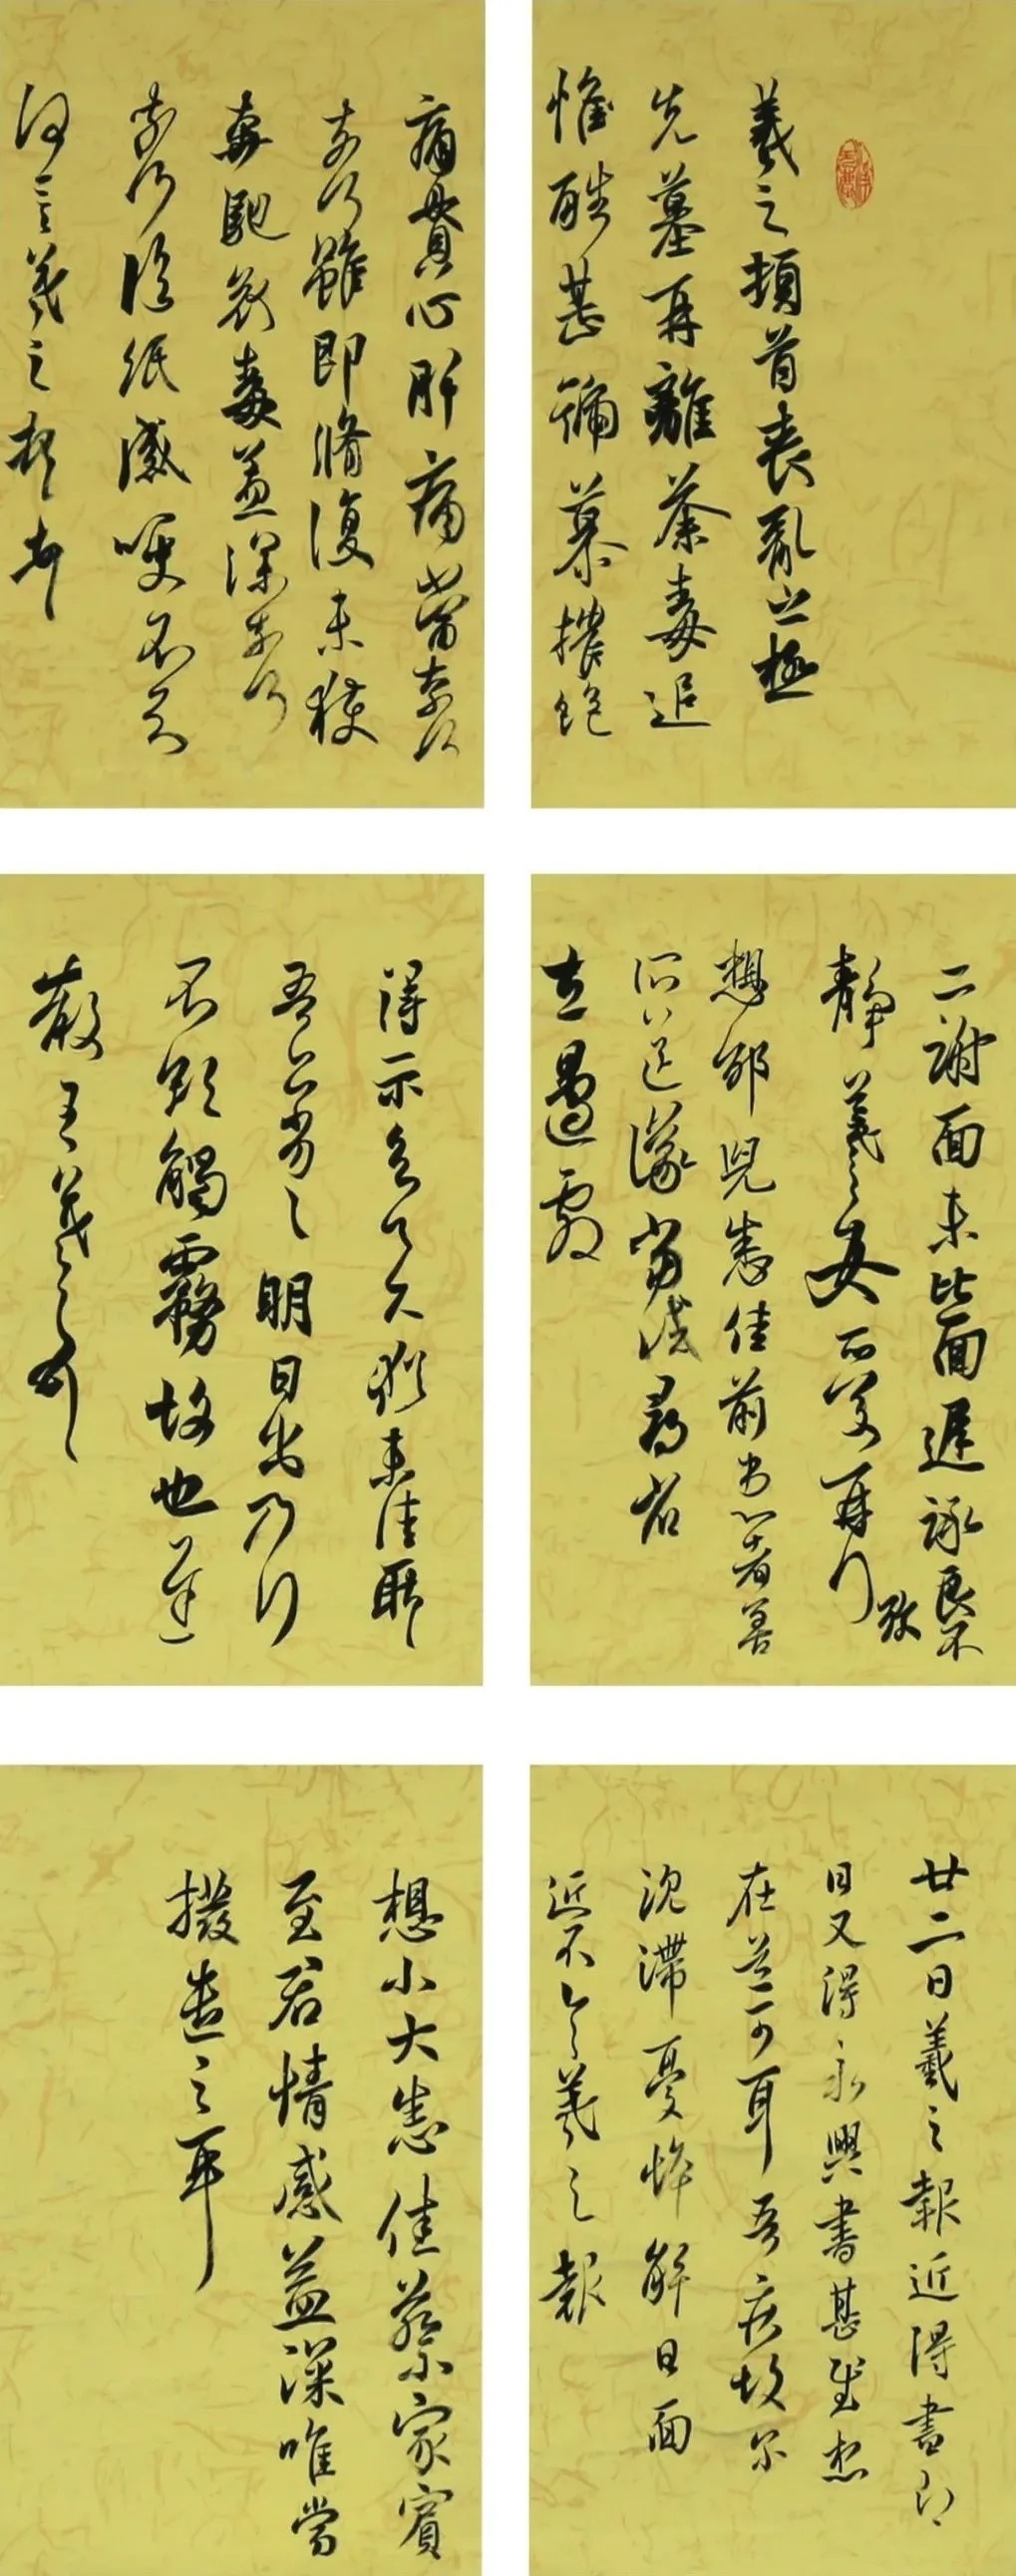 羲之頓首喪亂之極
先墓再離荼毒追
惟酷甚號慕摧絕
痛貫心肝痛當奈何
奈何雖即脩復未獲
奔馳哀毒益深奈何
奈何臨紙感哽不知
何言羲之頓首
二謝面未比面遲詠良不
靜羲之女愛再拜
想邰兒悉佳前患者善
所送議當試尋省
左邊劇
得示知足下猶未佳耿
吾亦劣劣明日出乃行
不欲觸霧故也遲
散王羲之頓首
廿二日羲之報近得書即
日又得永興書甚慰想
在道可耳吾疾故爾
沈滯憂悴解日面
近不具羲之報
想小大悉佳蔡家賓
至君情感益深唯當
撥遣之耳